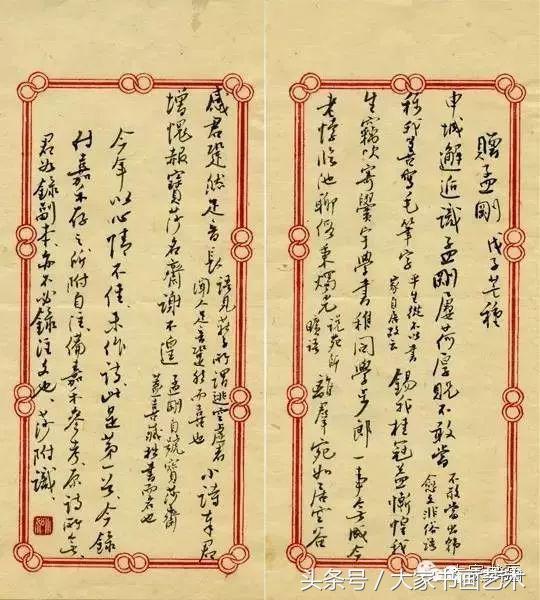 贈孟剛 戊子芒種
申城邂逅識孟剛屢荷厚貺不敢當 不敢當出韓愈文非俗語
稱我善寫毛筆字 半生從不以書家自居故云 錫我桂冠益慚惶我
生竊吹寄黌宇學書稚同學步郎一事無成今
老悖臨池聊假秉燭光 說苑師曠語 離群宛如居空谷
感君跫然足音長 語見莊子所謂逃空虛者聞人足音跫然而喜也 小詩奉君
增愧赧寶莎名齋謝不遑 孟剛自號寶莎齋蓋喜藏拙書也
今年以心情不佳未作詩此是第一首今錄
付嘉禾存之所附自注備嘉禾參考原詩所無
君如錄副本亦不必錄注文也莎附識
头条号/大家书画艺术